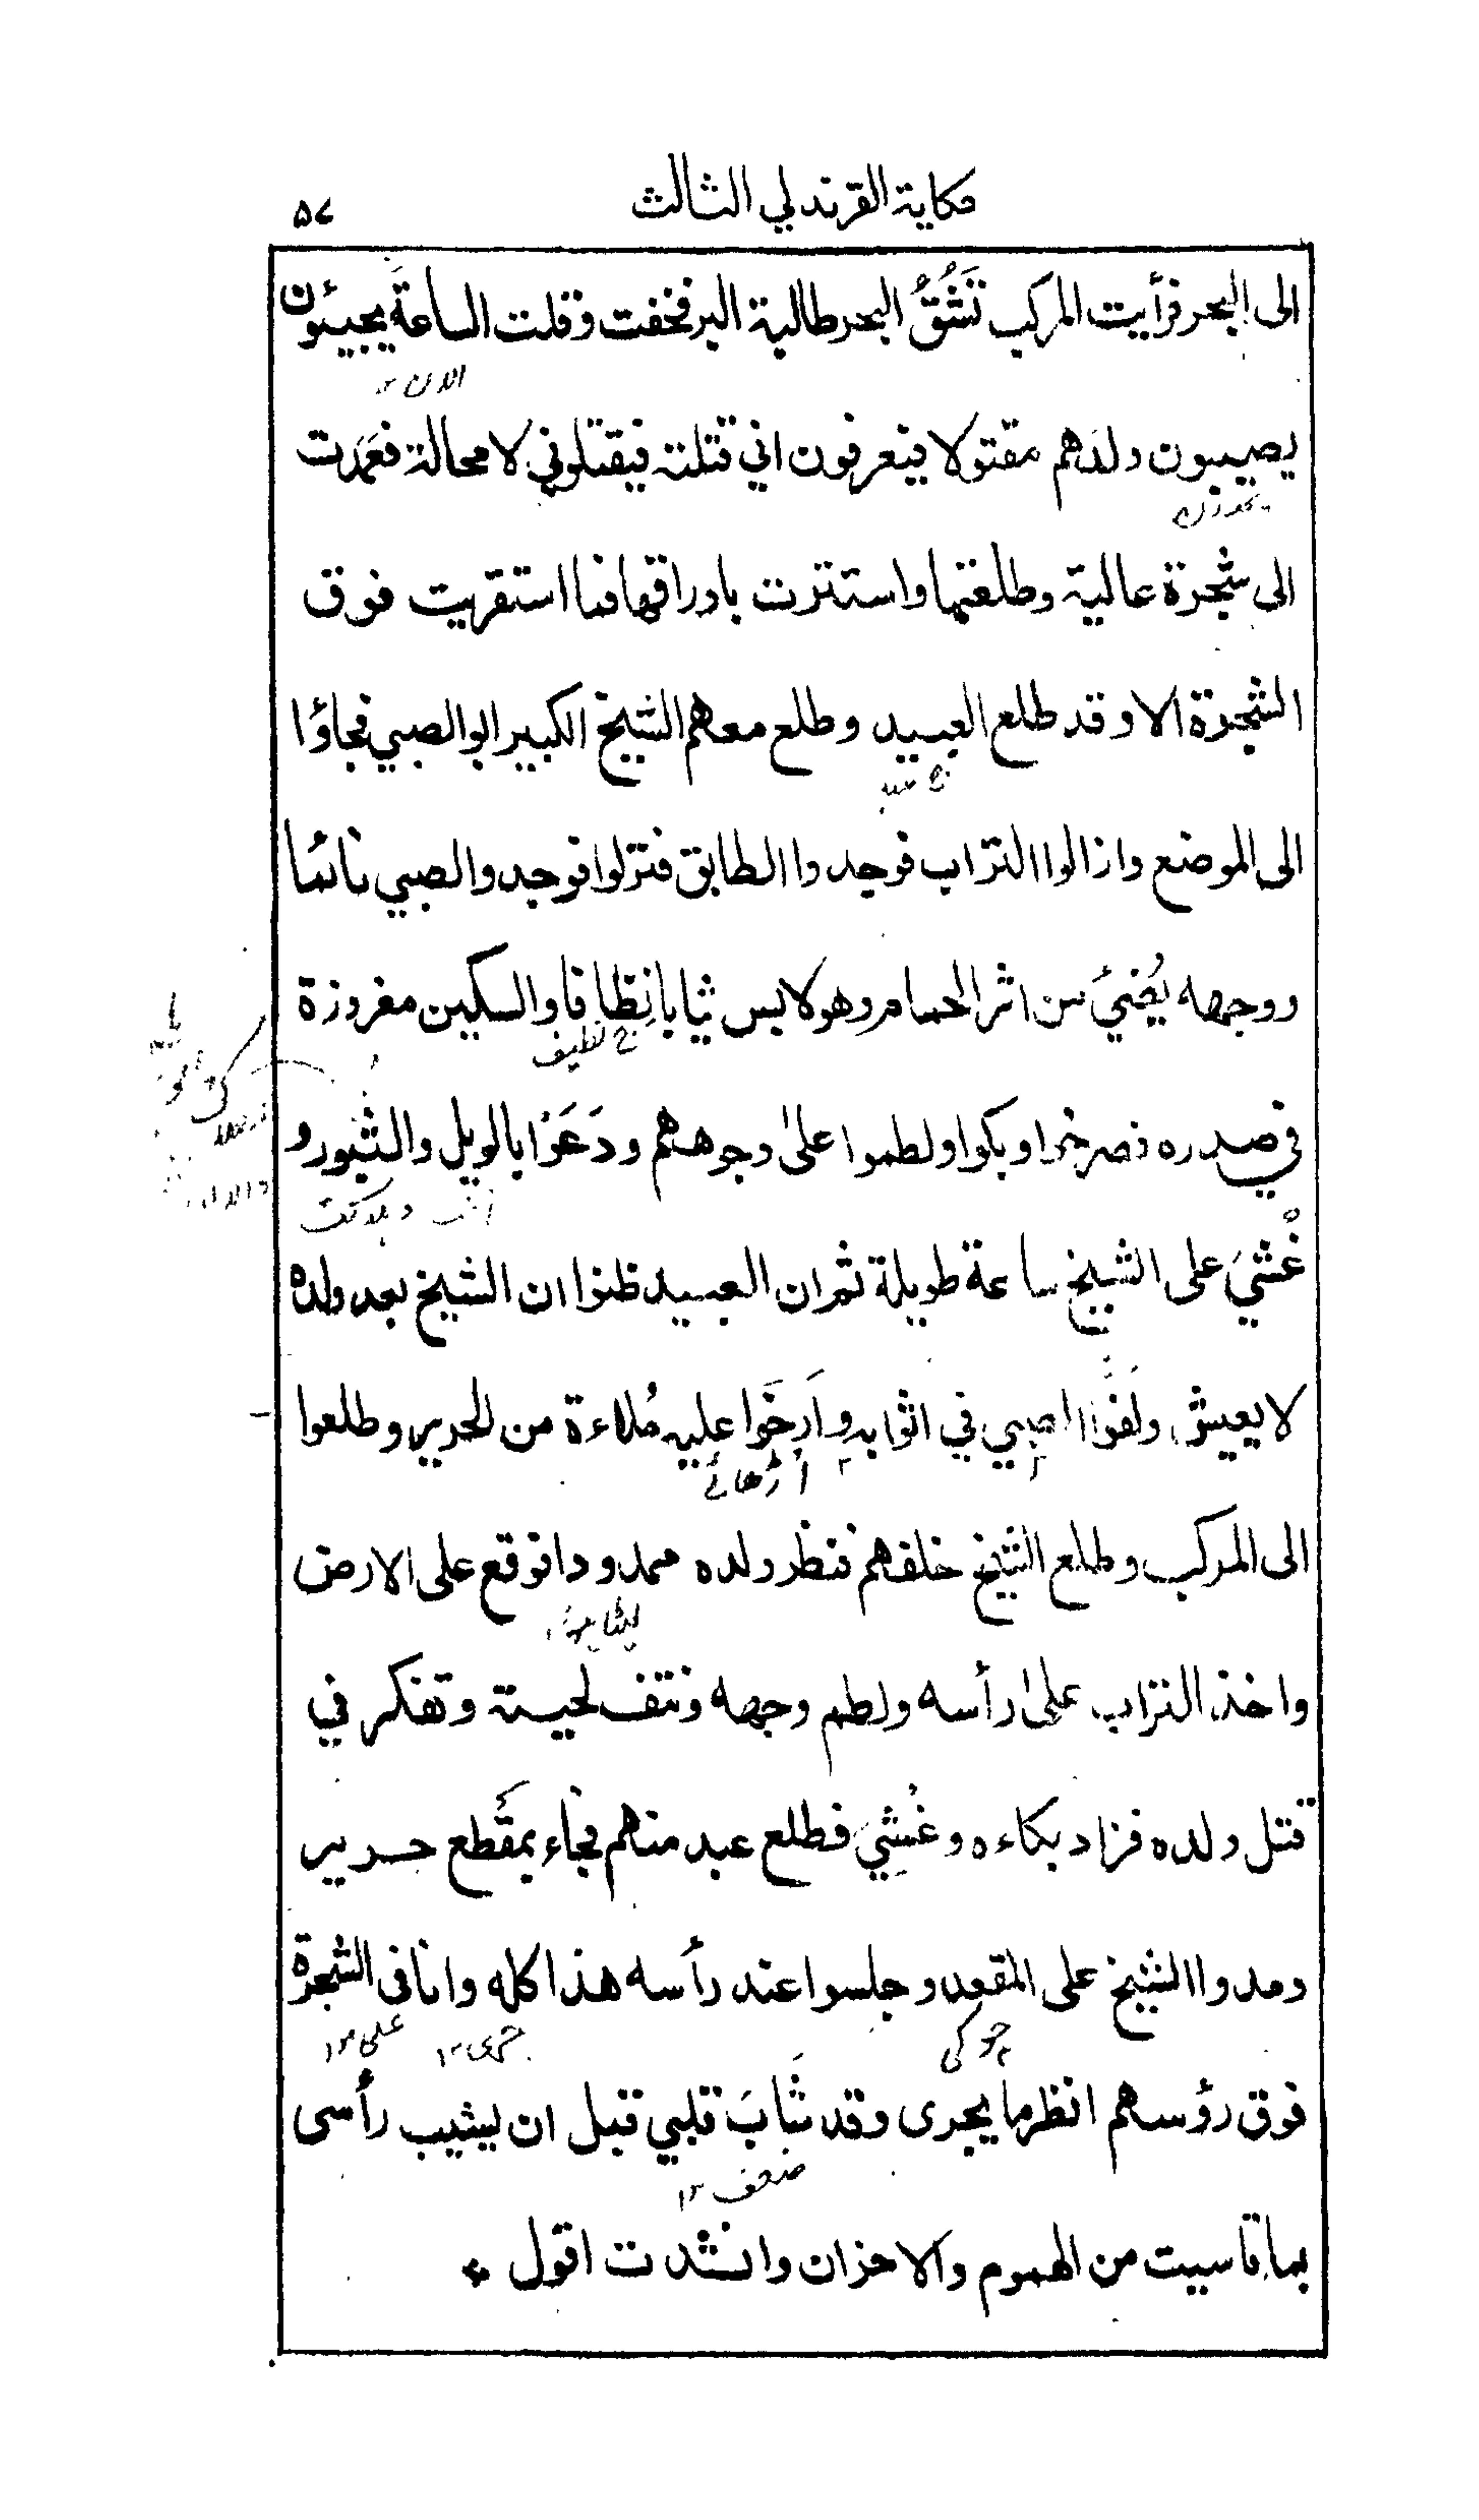 حكاية القرندلي الثالث ٥٧
الى البحر فرأيت المركب تَشُقُّ البحر طالبة البر فخفت وقلت الساعةَ يجيئون
الان ١٢
يصيبون ولدَهم مقتولا فيعرفون اني قتلته فيقتلوني لا محالة فعمدت
يجدون
الى شجرة عالية وطلعتها واستترت باوراقها فما استقريت فوق
الشجرة الا وقد طلع العبيد وطلع معهم الشيخ الكبير ابو الصبي فجاؤا
ج عبد
الى الموضع وازالوا التراب فوجدوا الطابق فنزلوا فوجدوا الصبي نائما
ووجهه يُضيءُ من اثر الحمام وهو لابس ثيابا نِظافا والسكين مغروزة
ج نظيف
في صدره فصرخوا وبكوا ولطموا على وجوههم ودَعَوا بالويل والثبور و
غُشيَ على الشيخ ساعة طويلة ثم ان العبيد ظنوا ان الشيخ بعد ولده
لا يعيش ولَفُّوا الصبي في اثوابه وارخَوا عليه مُلاءة من الحرير وطلعوا
الى المركب وطلع الشيخ خلفهم فنظر ولده ممدودا فوقع على الارض
واخذ التراب على رأسه ولطم وجهه ونتف لحيته وتفكر في
قتل ولده فزاد بكاءه وغُشِيَ فطلع عبد منهم فجاء بمَقطع حرير
ومدوا الشيخ على المقعد وجلسوا عند رأسه هذا كله وانا فى الشجرة
چوكى على ١٢
فوق رؤسهم انظر ما يجرى وقد شَابَ قلبي قبل ان يشيب رأسى
ضعف ١٢
بما قاسيت من الهموم والاحزان وانشدت اقول *